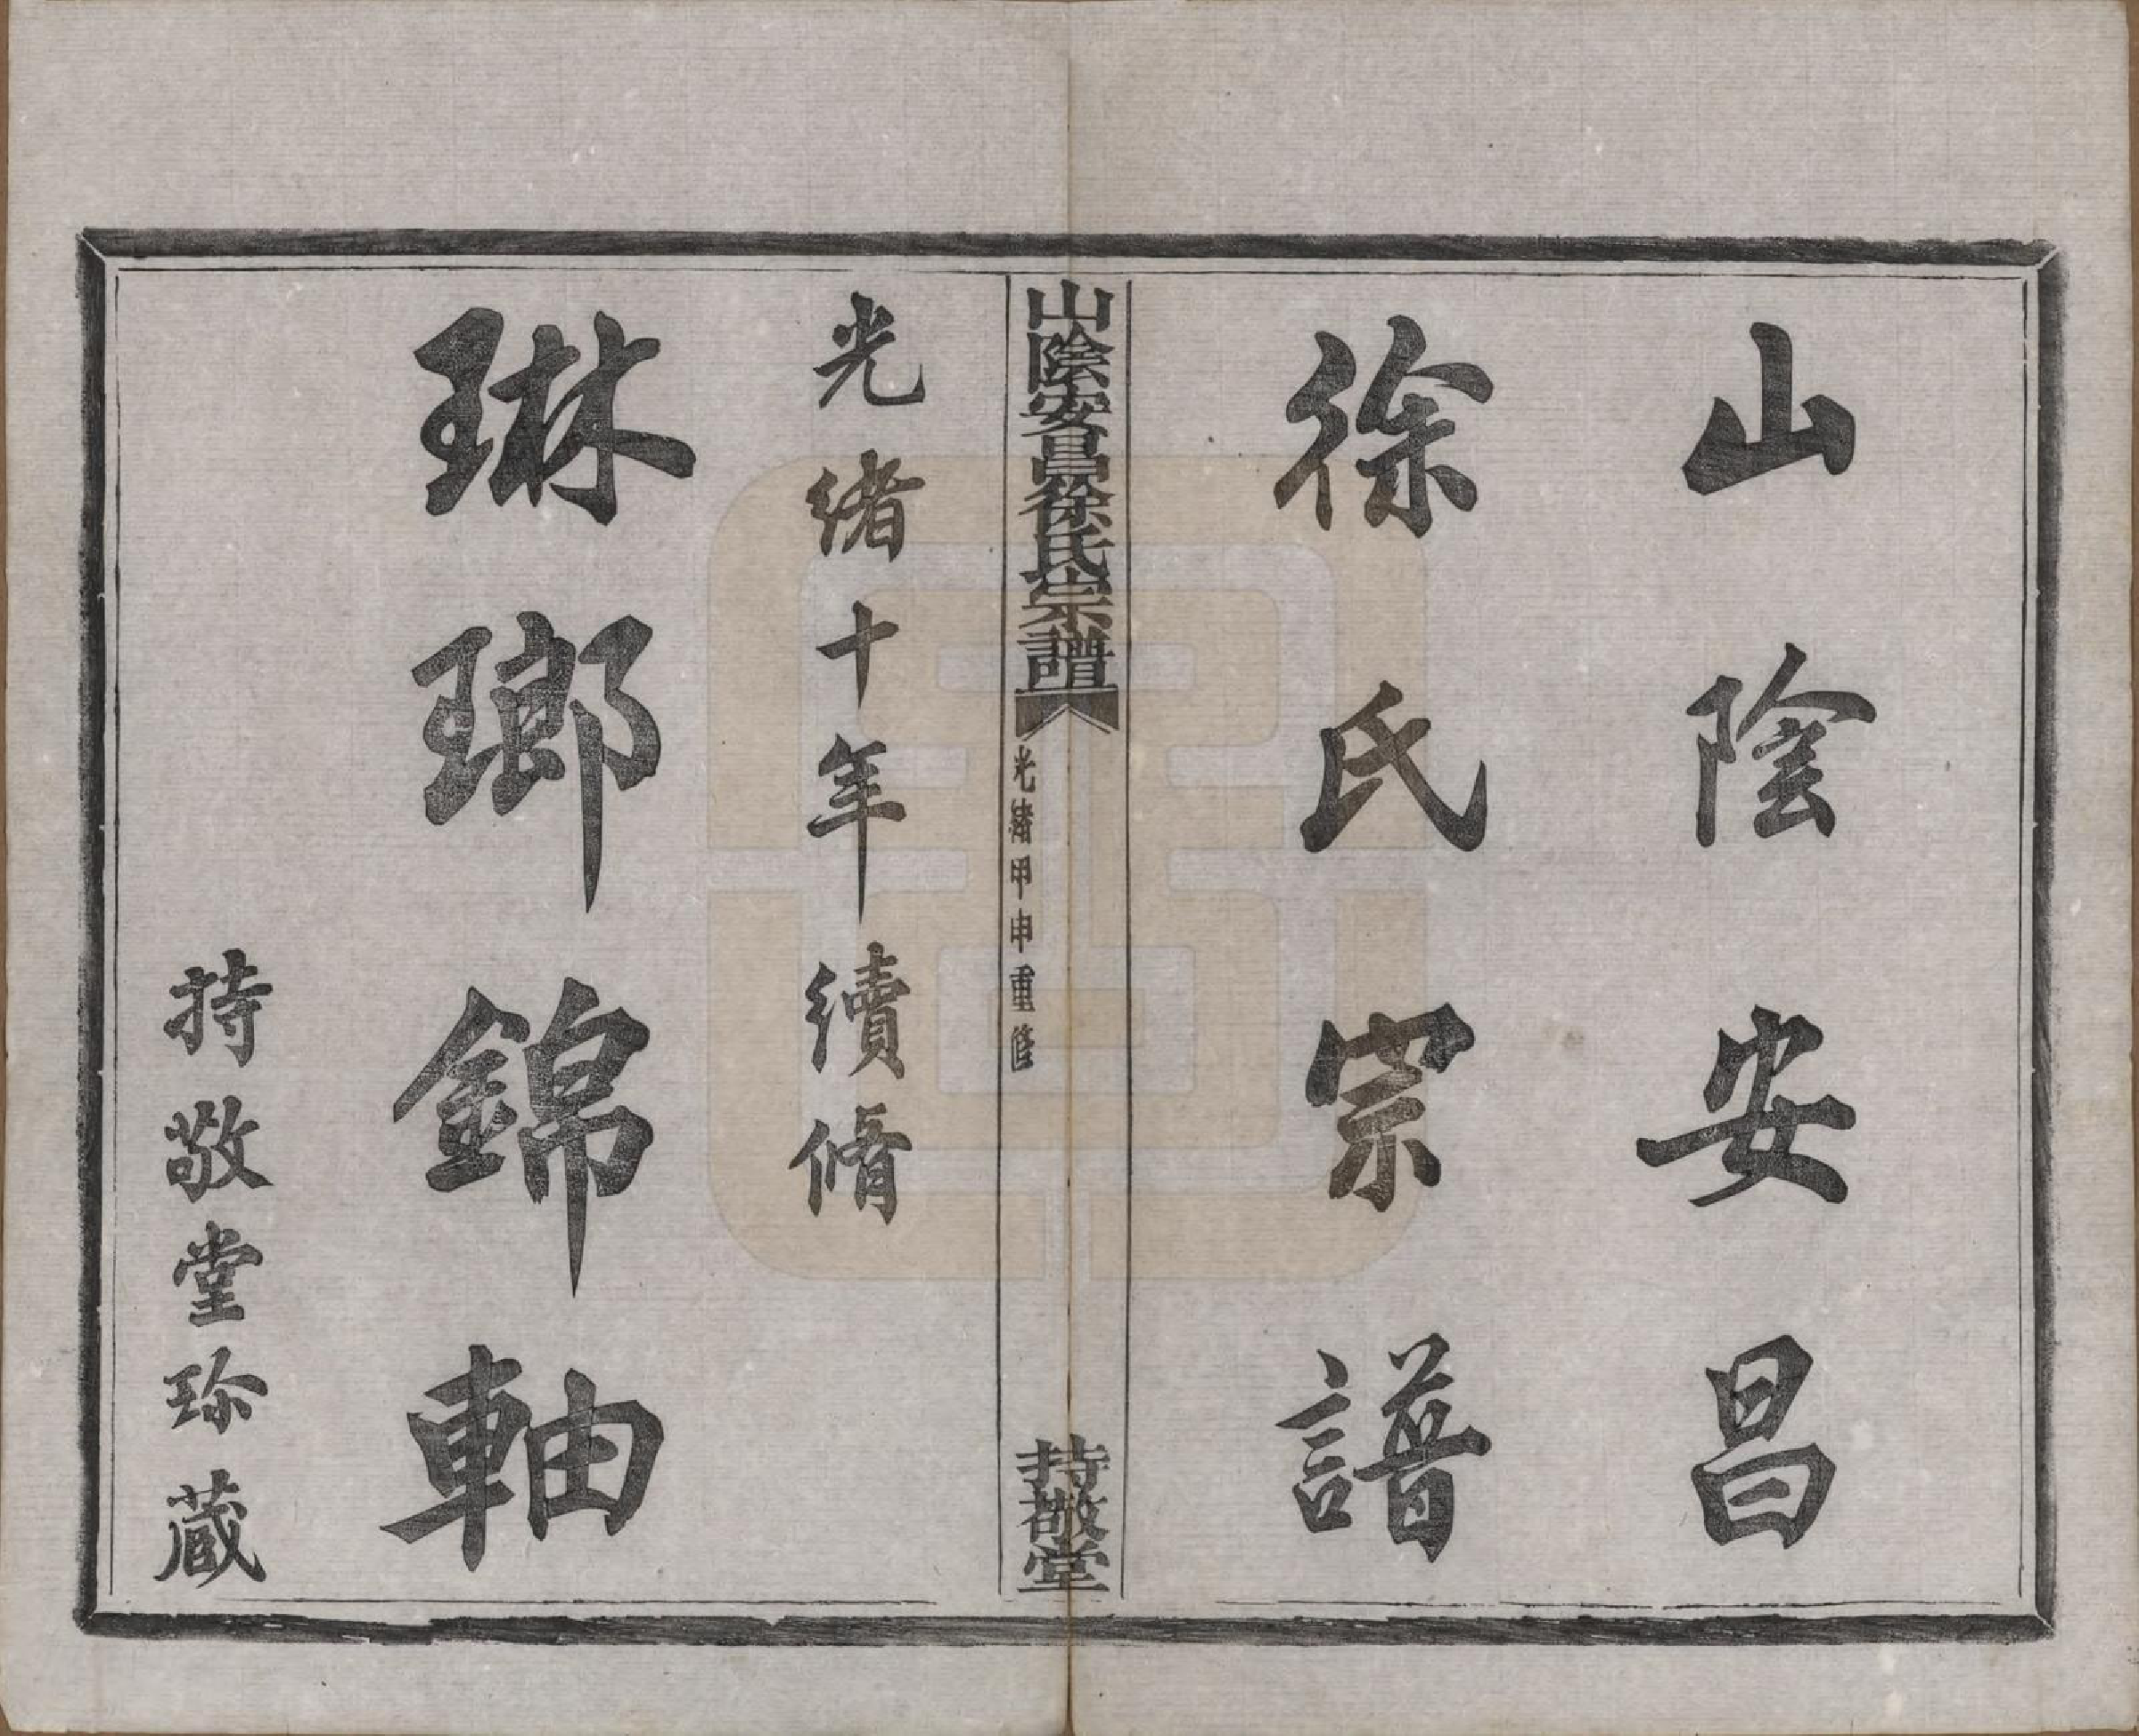 山陰安昌
徐氏宗譜
山陰安昌徐氏宗譜
光緒甲申重修
持敬堂
光緒十年續脩
琳瑯錦軸
持敬堂珍藏